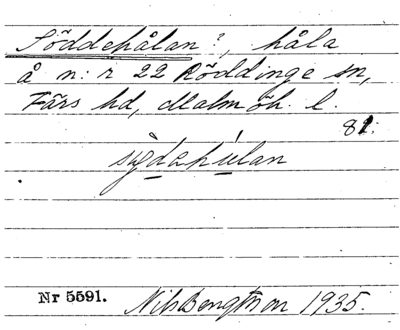 Söddehålan?, håla
å n:r 22 Röddinge sn,
Färs hd, Malmöh. l.
81.
Nr 5591. Nils Bengtsson 1935.